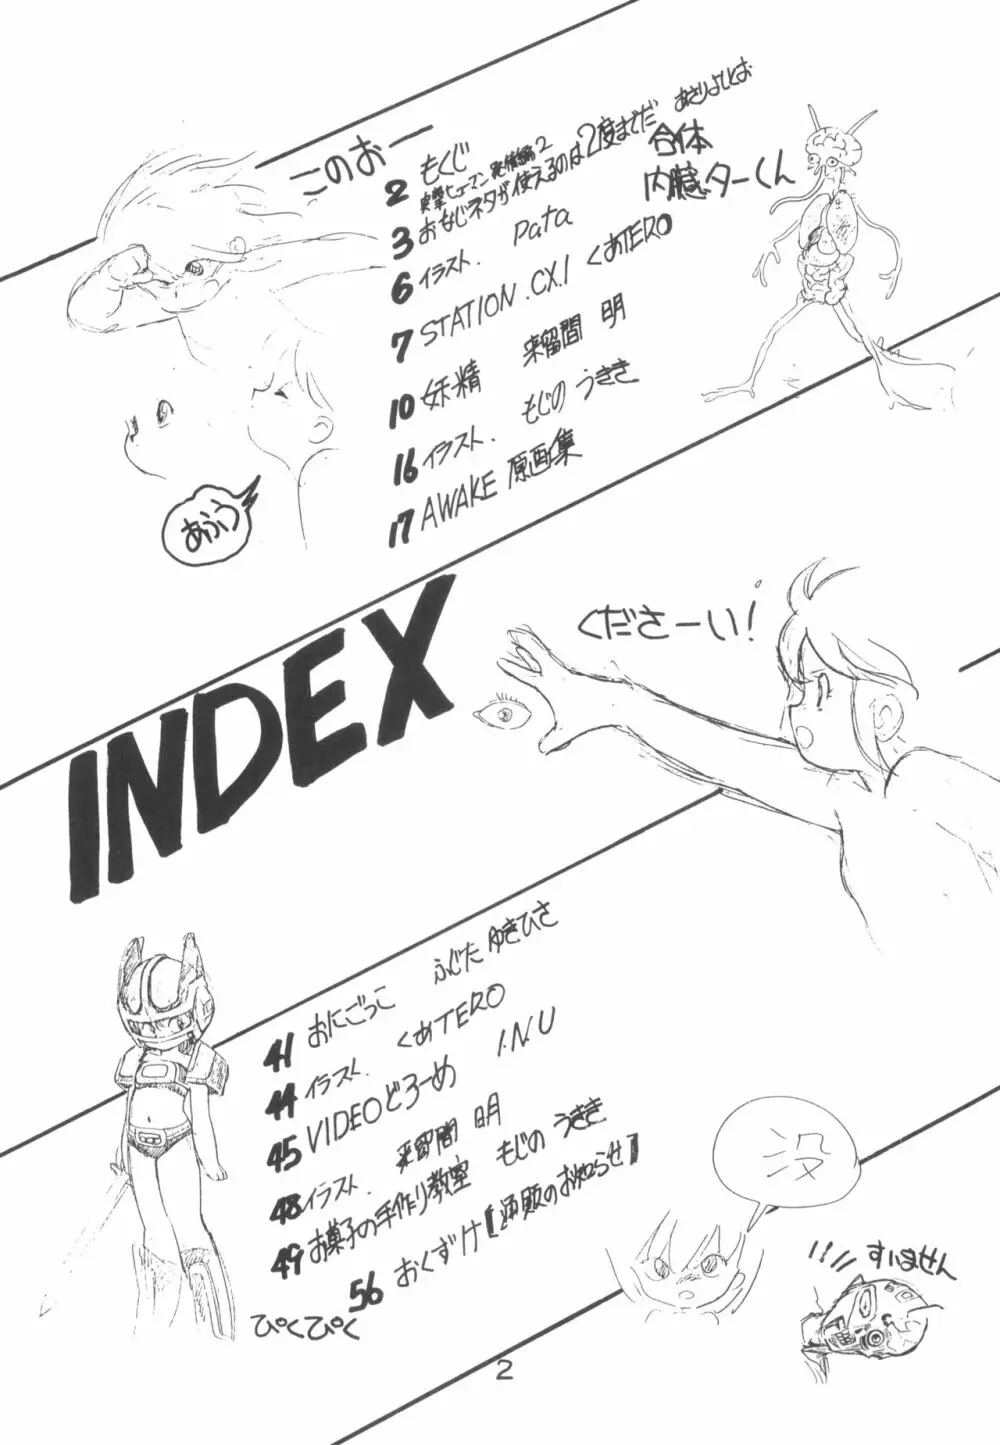 このおー
2 もくじ
突撃ヒューマン発情編2
3 おなじネタが使えるのは2度までだ あさりよしとお
合体
内臓ターくん
6 イラスト. Pata
7 STATION.CX.1 くあTERO
10 妖精 来留間 明
16 イラスト. もじの うきき
17 AWAKE 原画集
あふう
INDEX
くださーい!
41 おにごっこ ふじた ゆきひさ
44 イラスト. くあTERO
45 VIDEOどろーめ I.N.U
48 イラスト. 来留間 明
49 お菓子の手作り教室 もじの うきき
56 おくずけ【通販のお知らせ】
ぴくぴく
没
すいません
2